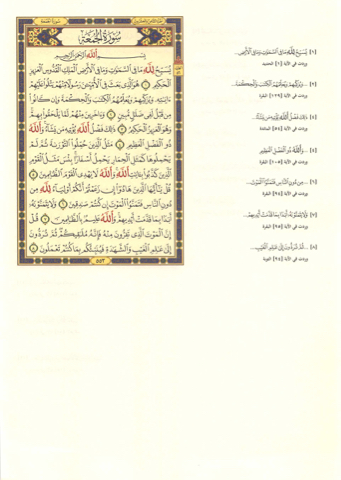 سُورَةُ الجُمُعَةِ
بِسْمِ اللَّهِ الرَّحْمَٰنِ الرَّحِيمِ
يُسَبِّحُ لِلَّهِ مَا فِي السَّمَٰوَٰتِ وَمَا فِي الْأَرْضِ الْمَلِكِ الْقُدُّوسِ الْعَزِيزِ
الْحَكِيمِ ١ هُوَ الَّذِي بَعَثَ فِي الْأُمِّيِّۦنَ رَسُولًا مِّنْهُمْ يَتْلُوا۟ عَلَيْهِمْ
ءَايَٰتِهِۦ وَيُزَكِّيهِمْ وَيُعَلِّمُهُمُ الْكِتَٰبَ وَالْحِكْمَةَ وَإِن كَانُوا۟
مِن قَبْلُ لَفِي ضَلَٰلٍ مُّبِينٍ ٢ وَءَاخَرِينَ مِنْهُمْ لَمَّا يَلْحَقُوا۟ بِهِمْ
وَهُوَ الْعَزِيزُ الْحَكِيمُ ٣ ذَٰلِكَ فَضْلُ اللَّهِ يُؤْتِيهِ مَن يَشَآءُ وَاللَّهُ
ذُو الْفَضْلِ الْعَظِيمِ ٤ مَثَلُ الَّذِينَ حُمِّلُوا۟ التَّوْرَىٰةَ ثُمَّ لَمْ
يَحْمِلُوهَا كَمَثَلِ الْحِمَارِ يَحْمِلُ أَسْفَارًا بِئْسَ مَثَلُ الْقَوْمِ
الَّذِينَ كَذَّبُوا۟ بِـَٔايَٰتِ اللَّهِ وَاللَّهُ لَا يَهْدِي الْقَوْمَ الظَّٰلِمِينَ ٥
قُلْ يَٰٓأَيُّهَا الَّذِينَ هَادُوٓا۟ إِن زَعَمْتُمْ أَنَّكُمْ أَوْلِيَآءُ لِلَّهِ مِن
دُونِ النَّاسِ فَتَمَنَّوُا۟ الْمَوْتَ إِن كُنتُمْ صَٰدِقِينَ ٦ وَلَا يَتَمَنَّوْنَهُۥٓ
أَبَدًۢا بِمَا قَدَّمَتْ أَيْدِيهِمْ وَاللَّهُ عَلِيمٌۢ بِالظَّٰلِمِينَ ٧ قُلْ
إِنَّ الْمَوْتَ الَّذِي تَفِرُّونَ مِنْهُ فَإِنَّهُۥ مُلَٰقِيكُمْ ثُمَّ تُرَدُّونَ
إِلَىٰ عَٰلِمِ الْغَيْبِ وَالشَّهَٰدَةِ فَيُنَبِّئُكُم بِمَا كُنتُمْ تَعْمَلُونَ ٨
٥٥٣
[١] يُسَبِّحُ لِلَّهِ مَا فِي السَّمَٰوَٰتِ وَمَا فِي الْأَرْضِ...
وردت في الآية [١] الحديد
[٢] ...وَيُزَكِّيهِمْ وَيُعَلِّمُهُمُ الْكِتَٰبَ وَالْحِكْمَةَ...
وردت في الآية [١٢٩] البقرة
[٤] ذَٰلِكَ فَضْلُ اللَّهِ يُؤْتِيهِ مَن يَشَآءُ...
وردت في الآية [٥٤] المائدة
[٤] ...وَاللَّهُ ذُو الْفَضْلِ الْعَظِيمِ
وردت في الآية [١٠٥] البقرة
[٦] ...مِن دُونِ النَّاسِ فَتَمَنَّوُا۟ الْمَوْتَ...
وردت في الآية [٩٤] البقرة
[٧] وَلَا يَتَمَنَّوْنَهُۥٓ أَبَدًۢا بِمَا قَدَّمَتْ أَيْدِيهِمْ...
وردت في الآية [٩٥] البقرة
[٨] ...ثُمَّ تُرَدُّونَ إِلَىٰ عَٰلِمِ الْغَيْبِ...
وردت في الآية [٩٤] التوبة